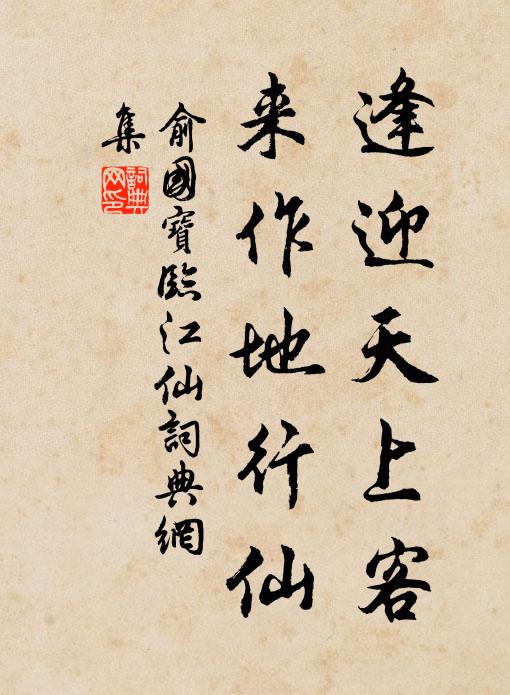 逢迎天上客
来作地行仙
俞國寶臨江仙詞典網
集
詞典
网印